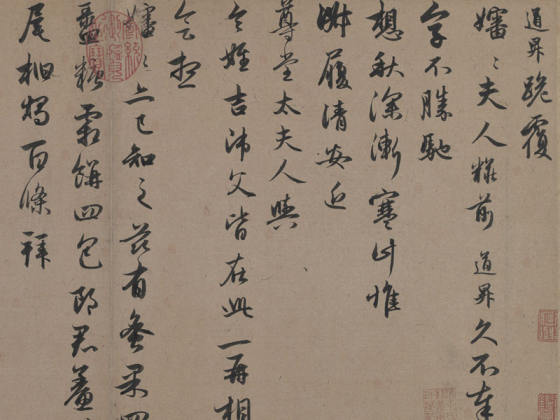 道昇跪覆
嬸〻夫人粧前道昇久不奉
字不勝馳
想秋深漸寒計惟
淑履清安近
尊堂太夫人與
令姪吉師父皆在此一再相
會想
嬸〻亦已知之茲有蜜果四
盝糖霜餅四包郎君鯗
尾桕燭百條拜